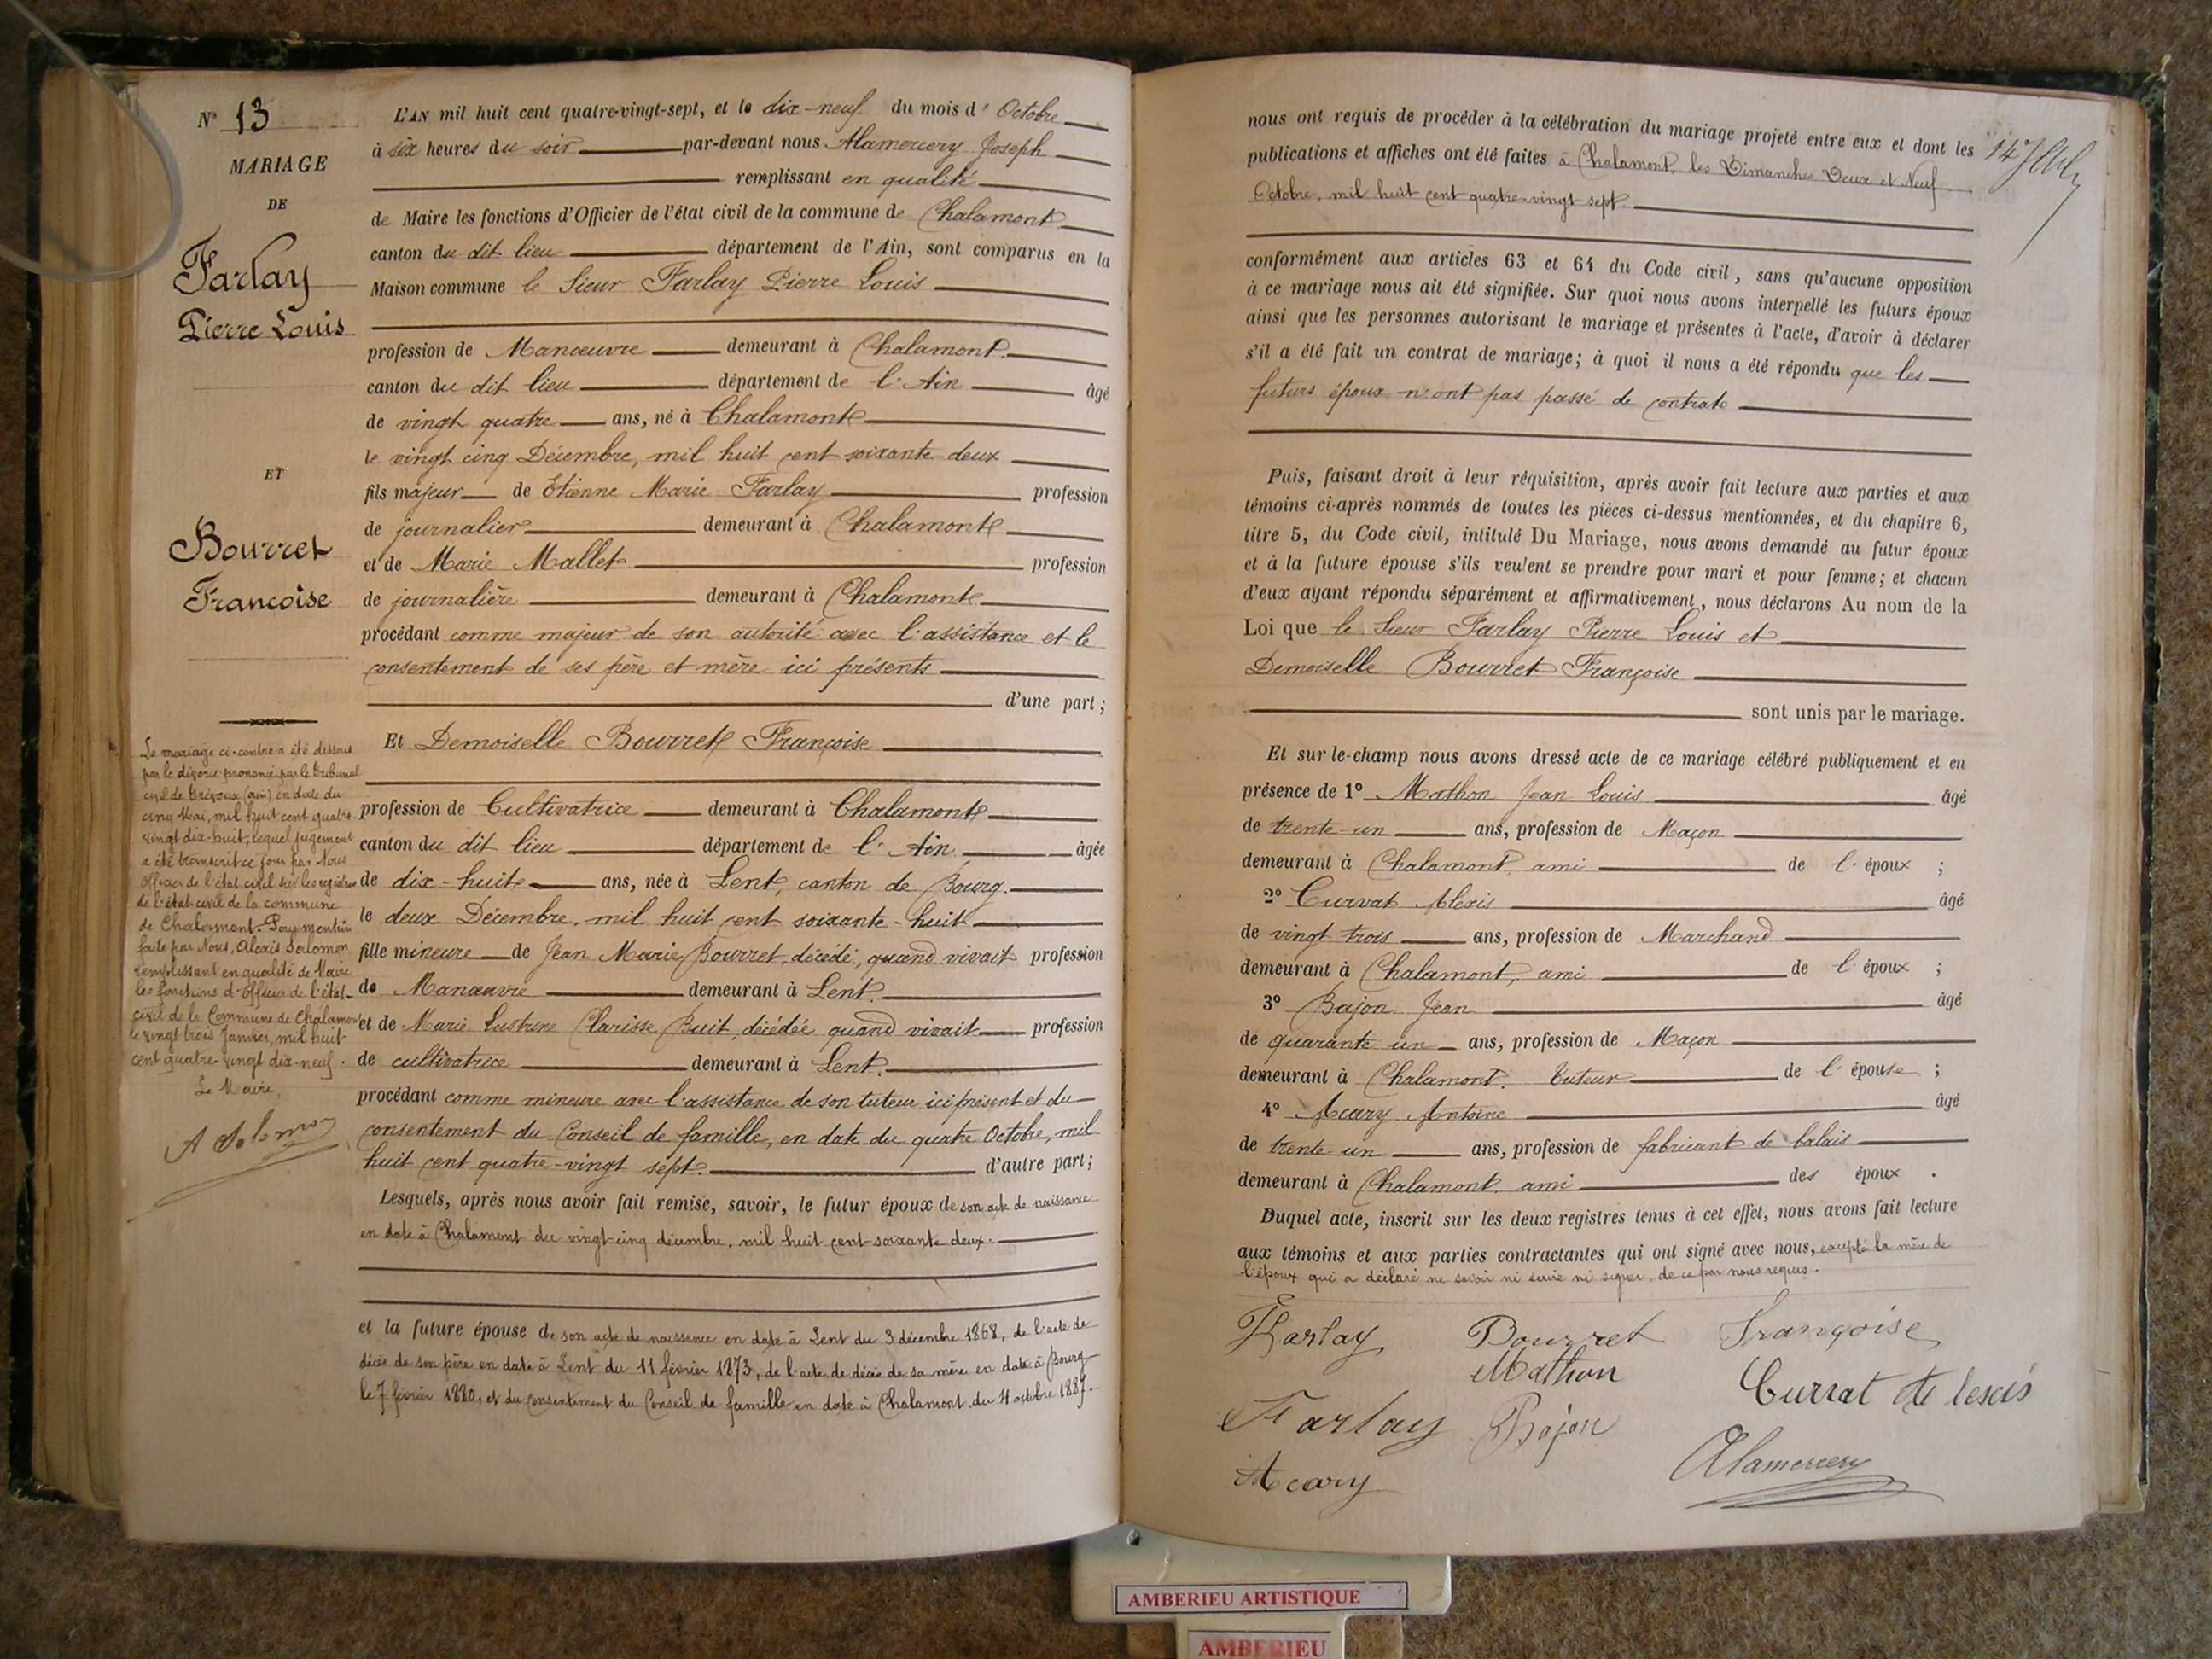 N° 13
MARIAGE
DE
Farlay
Pierre Louis
ET
Bourret
Françoise
Le mariage ci-contre a été dissous
par le divorce prononcé par le tribunal
civil de Trévoux (ain) en date du
cinq Mai, mil huit cent quatre-
vingt dix-huit, lequel jugement
a été transcrit ce jour par Nous
officier de l'état civil sur les registres
de l'état civil de la commune
de Chalamont. Pour mention
faite par Nous, Alexis Salomon
remplissant en qualité de Maire
les fonctions d'officier de l'état-
civil de la Commune de Chalamont
le vingt trois Janvier, mil huit
cent quatre-vingt dix-neuf.
Le Maire,
A Salomon
L'AN mil huit cent quatre-vingt-sept, et le dix-neuf du mois d'Octobre
à six heures du soir par-devant nous Alamercery Joseph
remplissant en qualité
de Maire les fonctions d'Officier de l'état civil de la commune de Chalamont
canton du dit lieu département de l'Ain, sont comparus en la
Maison commune le Sieur Farlay Pierre Louis
profession de Manœuvre demeurant à Chalamont.
canton du dit lieu département de l'Ain âgé
de vingt quatre ans, né à Chalamont
le vingt cinq Décembre, mil huit cent soixante deux
fils majeur de Etienne Marie Farlay profession
de journalier demeurant à Chalamont
et de Marie Mallet profession
de journalière demeurant à Chalamont
procédant comme majeur de son autorité avec l'assistance et le
consentement de ses père et mère ici présents
d'une part;
Et Demoiselle Bourret Françoise
profession de Cultivatrice demeurant à Chalamont
canton du dit lieu département de l'Ain âgée
de dix-huit ans, née à Lent, canton de Bourg.
le deux Décembre, mil huit cent soixante-huit
fille mineure de Jean Marie Bourret, décédé, quand vivait profession
de Manœuvre demeurant à Lent.
et de Marie Clarisse Buit, décédée quand vivait profession
de cultivatrice demeurant à Lent.
procédant comme mineure avec l'assistance de son tuteur ici présent et du
consentement du Conseil de famille, en date du quatre Octobre, mil
huit cent quatre-vingt sept. d'autre part;
Lesquels, après nous avoir fait remise, savoir, le futur époux de son acte de naissance
en date à Chalamont du vingt-cinq décembre, mil huit cent soixante deux.
et la future épouse de son acte de naissance en date à Lent du 3 décembre 1868, de l'acte de
décès de son père en date à Lent du 11 février 1873, de l'acte de décès de sa mère en date à Bourg
le 7 février 1880, et du consentement du Conseil de famille en date à Chalamont du 4 octobre 1887.
nous ont requis de procéder à la célébration du mariage projeté entre eux et dont les
publications et affiches ont été faites à Chalamont, les Dimanches Deux et Neuf
Octobre, mil huit cent quatre-vingt sept
conformément aux articles 63 et 64 du Code civil, sans qu'aucune opposition
à ce mariage nous ait été signifiée. Sur quoi nous avons interpellé les futurs époux
ainsi que les personnes autorisant le mariage et présentes à l'acte, d'avoir à déclarer
s'il a été fait un contrat de mariage; à quoi il nous a été répondu que les
futurs époux n'ont pas passé de contrat
Puis, faisant droit à leur réquisition, après avoir fait lecture aux parties et aux
témoins ci-après nommés de toutes les pièces ci-dessus mentionnées, et du chapitre 6,
titre 5, du Code civil, intitulé Du Mariage, nous avons demandé au futur époux
et à la future épouse s'ils veulent se prendre pour mari et pour femme; et chacun
d'eux ayant répondu séparément et affirmativement, nous déclarons Au nom de la
Loi que le Sieur Farlay Pierre Louis et
Demoiselle Bourret Françoise
sont unis par le mariage.
Et sur-le-champ nous avons dressé acte de ce mariage célébré publiquement et en
présence de 1° Mathon Jean Louis âgé
de trente-un ans, profession de Maçon
demeurant à Chalamont, ami de l'époux ;
2° Curvat Alexis âgé
de vingt trois ans, profession de Marchand
demeurant à Chalamont, ami de l'époux ;
3° Bajon Jean âgé
de quarante un ans, profession de Maçon
demeurant à Chalamont. tuteur de l'épouse ;
4° Acary Antoine âgé
de trente-un ans, profession de fabricant de balais
demeurant à Chalamont. ami des époux .
Duquel acte, inscrit sur les deux registres tenus à cet effet, nous avons fait lecture
aux témoins et aux parties contractantes qui ont signé avec nous, excepté la mère de
l'époux qui a déclaré ne savoir ni écrire ni signer, de ce par nous requis.
Farlay Bourret Françoise
Mathon
Farlay Bajon
Acary Alamercery
AMBERIEU ARTISTIQUE
AMBERIEU